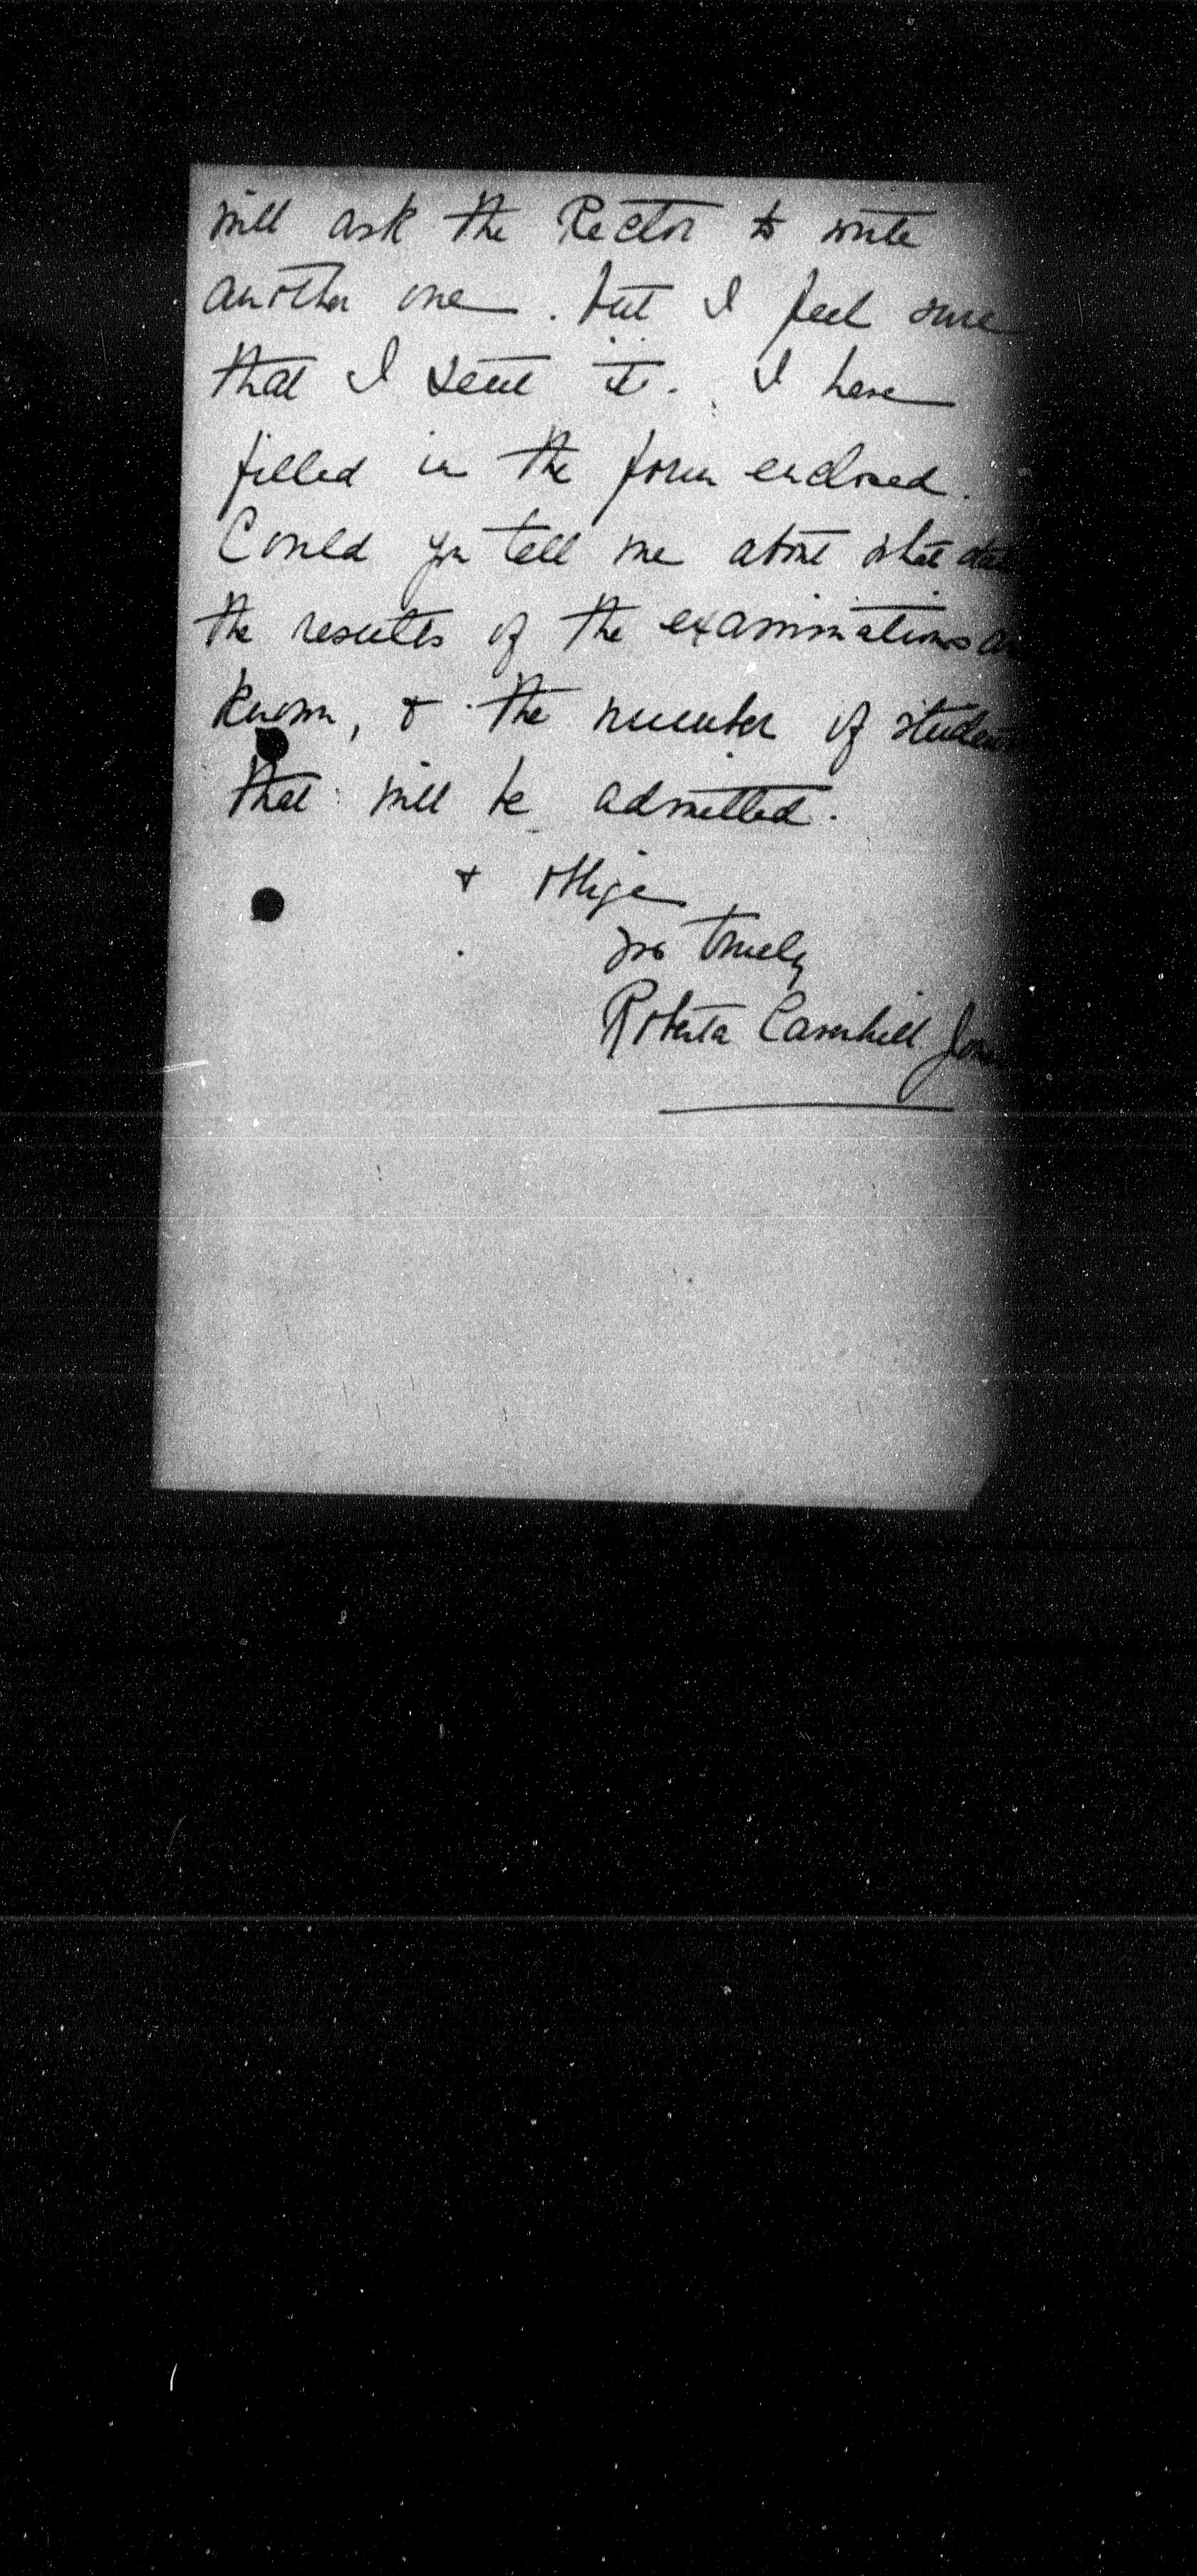 will ask the Rector to write
another one. but I feel sure
that I sent it. I have
filled in the form enclosed.
Could you tell me about what
the results of the examinations
known, & the number of
that will be admitted.
& oblige
yrs truely
Roberta